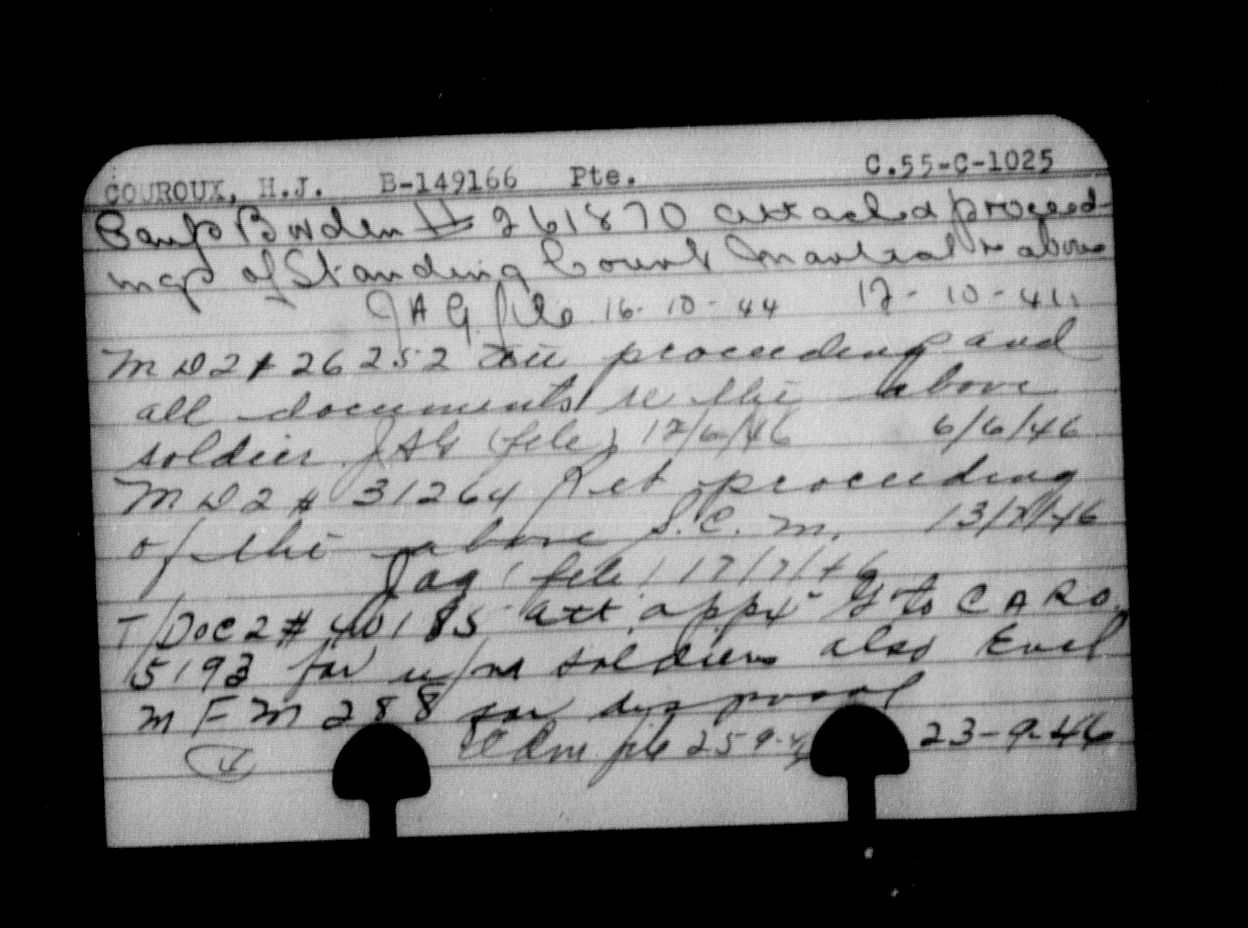 COUROUX, H.J. B-149166 Pte. C.55-C-1025
Camp Borden # 261870 attached proceed-
ings of Standing Court Martial re above
JAG file 16-10-44 12-10-44
MD2 # 26252 att proceedings and
all documents re the above
soldier JAG (file) 12/6/46 6/6/46
MD2 # 31264 Ret proceeding
of the above S.C.M. 13/7/46
Jag (file) 17/7/46
T/Doc2 # 40185 att appx "G" to C A R O
5193 for u/m soldiers also Encl
M F M 288 for disposal
file 25 9 23-9-46